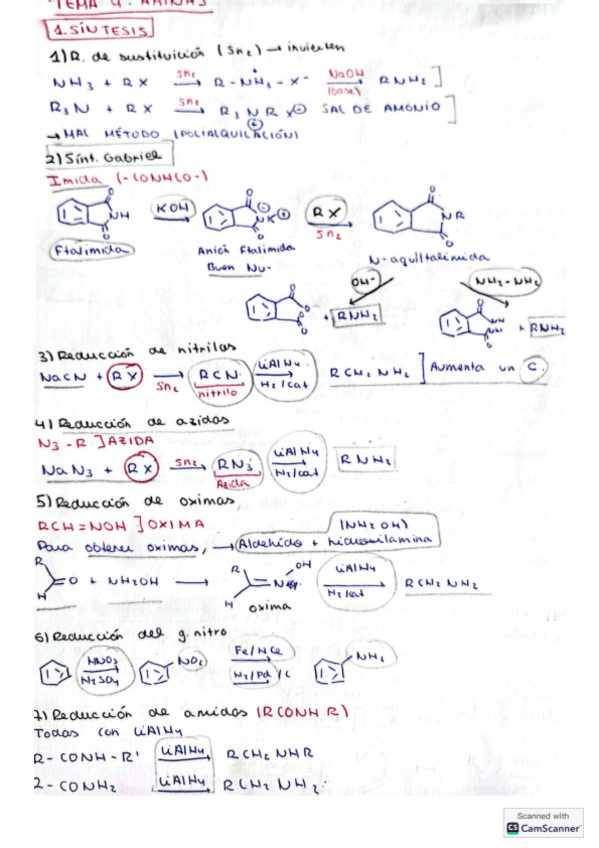 TEMA 4: AMINAS
1. SÍNTESIS
1) R. de sustitución (Sn2) → invierten
NH3 + RX Sn2 → R-NH3-X- + NaOH (base) → RNH2]
R3N + RX Sn2 → R3NRX⊖ ⊕ SAL DE AMONIO]
→ MAL MÉTODO (POLIALQUILACIÓN)
2) Sínt. Gabriel
Imida (-CONHCO-)
O NH O KOH → O N⊖ K⊕ O RX Sn2 → O NR O
Ftalimida Anión Ftalimida N-aquilftalimida
Buen Nu-
OH- NH2-NH2
O O O + RNH2 O NH NH O + RNH2
3) Reducción de nitrilos
NaCN + RX Sn2 → RCN nitrilo LiAlH4 H2/cat → RCH2NH2] Aumenta un C.
4) Reducción de azidas
N3-R] AZIDA
NaN3 + RX Sn2 → RN3 Azida LiAlH4 H2/cat → RNH2
5) Reducción de oximas
RCH=NOH] OXIMA (NH2OH)
Para obtener oximas, → Aldehído + hidroxilamina
R H =O + NH2OH → R H =N OH LiAlH4 H2/cat → RCH2NH2
oxima
6) Reducción del g. nitro
HNO3 H2SO4 → NO2 Fe/HCl H2/Pd/C → NH2
7) Reducción de amidas (RCONHR)
Todas con LiAlH4
R-CONH-R' LiAlH4 → RCH2NHR
R-CONH2 LiAlH4 → RCH2NH2
Scanned with
CS CamScanner